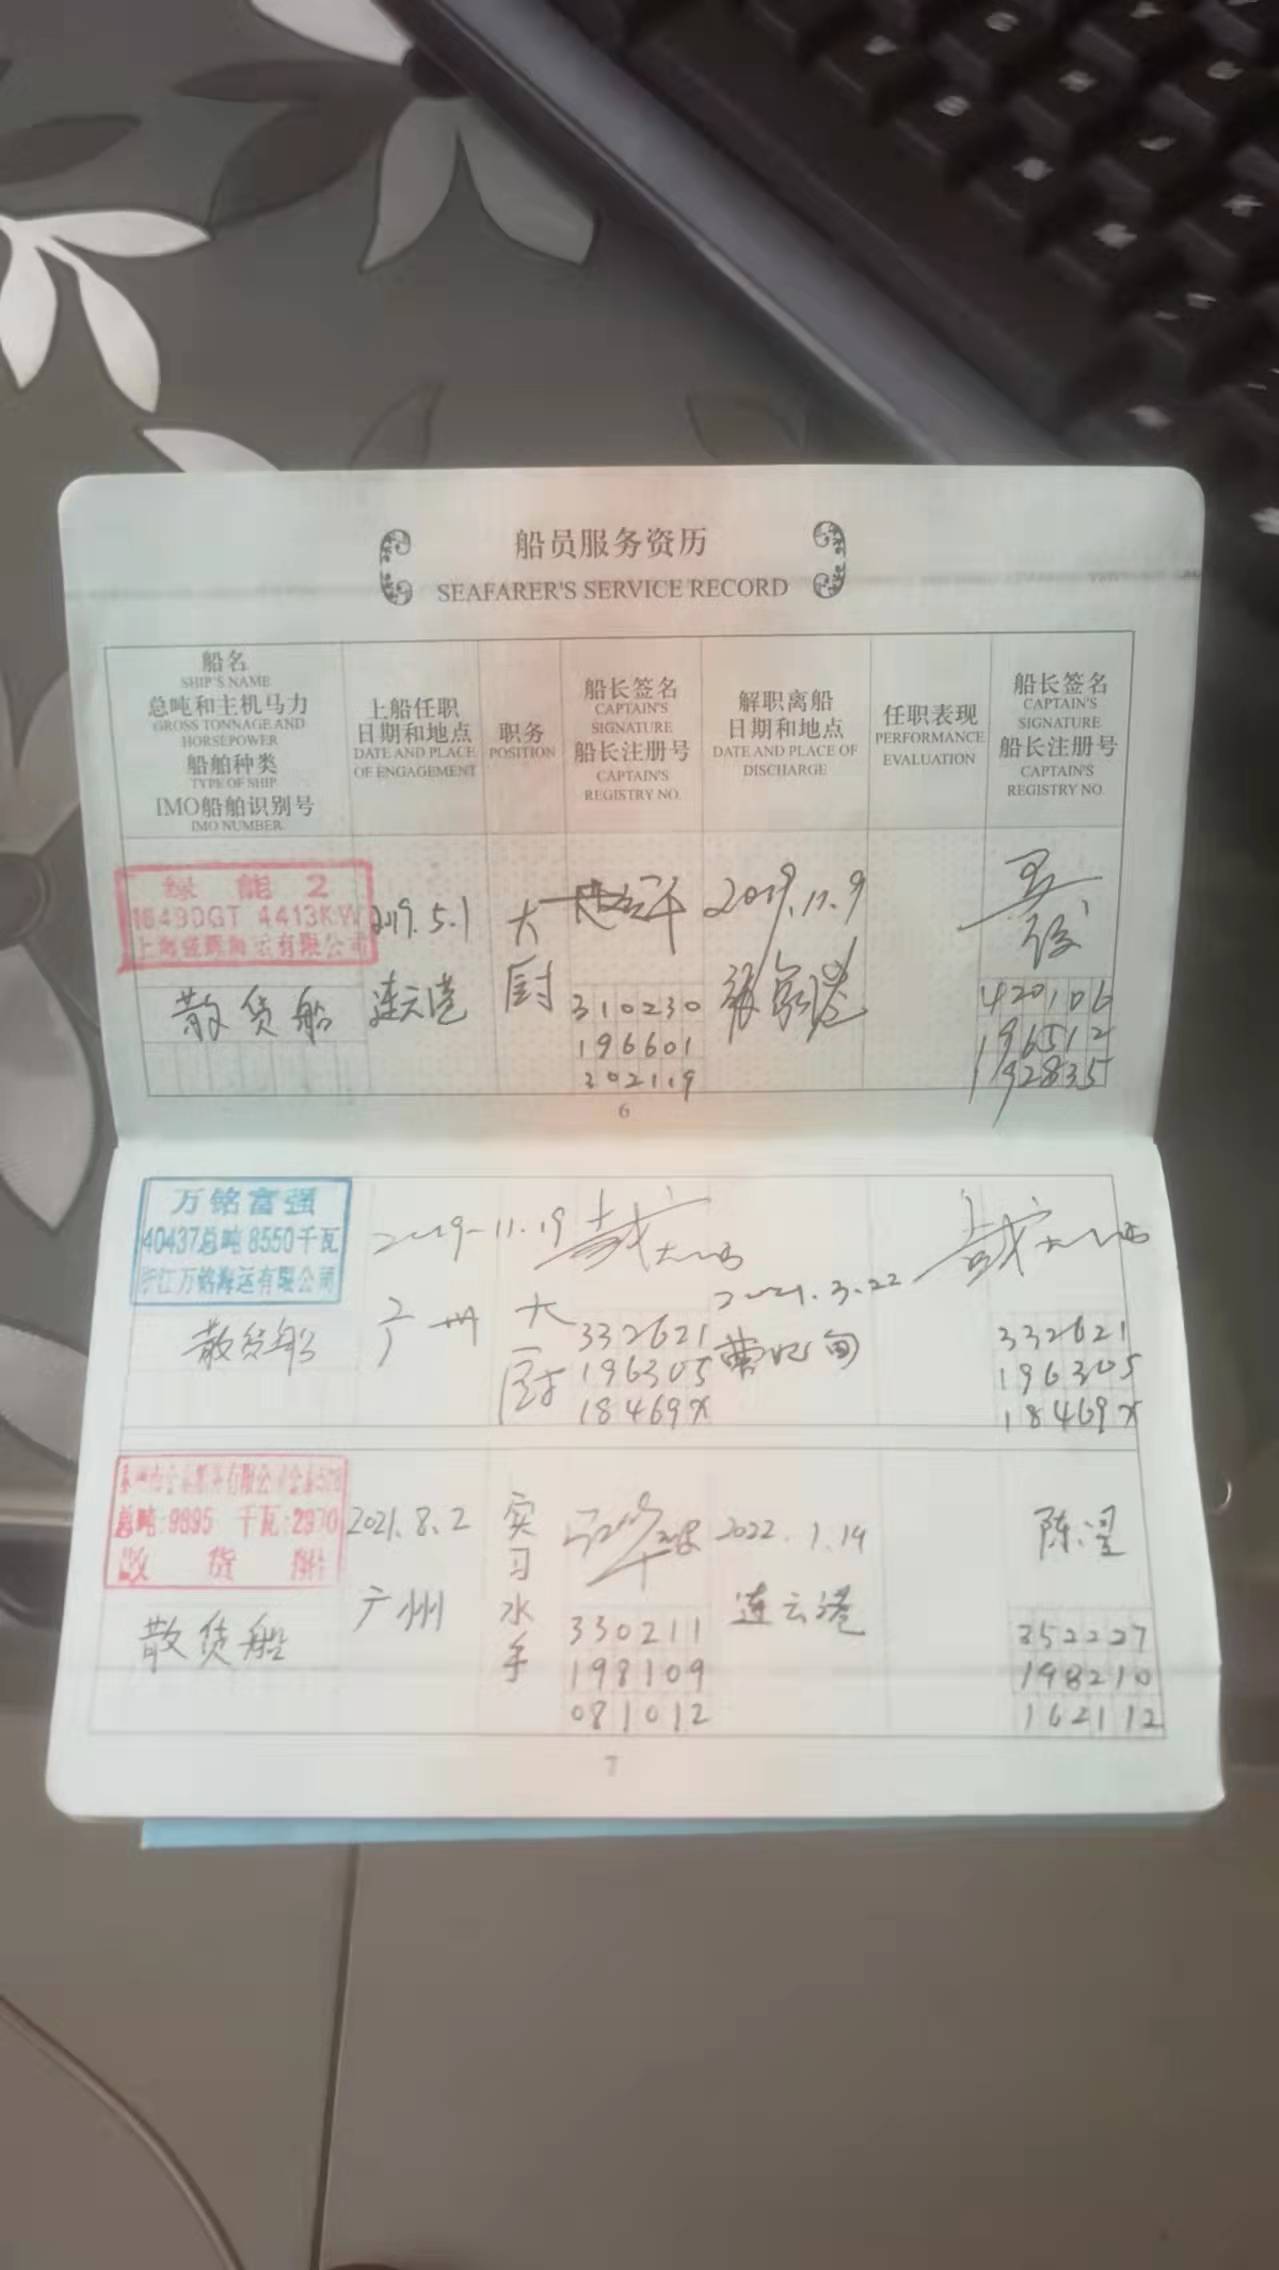 船员服务资历
SEAFARER'S SERVICE RECORD
船名
SHIP'S NAME
总吨和主机马力
GROSS TONNAGE AND
HORSEPOWER
船舶种类
TYPE OF SHIP
IMO船舶识别号
IMO NUMBER
上船任职
日期和地点
DATE AND PLACE
OF ENGAGEMENT
职务
POSITION
船长签名
CAPTAIN'S
SIGNATURE
船长注册号
CAPTAIN'S
REGISTRY NO.
解职离船
日期和地点
DATE AND PLACE OF
DISCHARGE
任职表现
PERFORMANCE
EVALUATION
船长签名
CAPTAIN'S
SIGNATURE
船长注册号
CAPTAIN'S
REGISTRY NO.
绿能2
16490GT 4413KW
海运有限公司
散货船
2019.5.1
连云港
大
厨
310230
196601
302119
2019.11.9
张家港
420106
196512
192835
6
万铭富强
40437总吨8550千瓦
浙江万铭海运有限公司
散货船
2019-11.19
广州
大
厨
332621
196305
18469X
2021.3.22
曹妃甸
332621
196305
18469X
总吨:9895 千瓦:2970
散货船
散货船
2021.8.2
广州
实
习
水
手
330211
198109
081012
2022.1.14
连云港
陈
352227
198210
162112
7